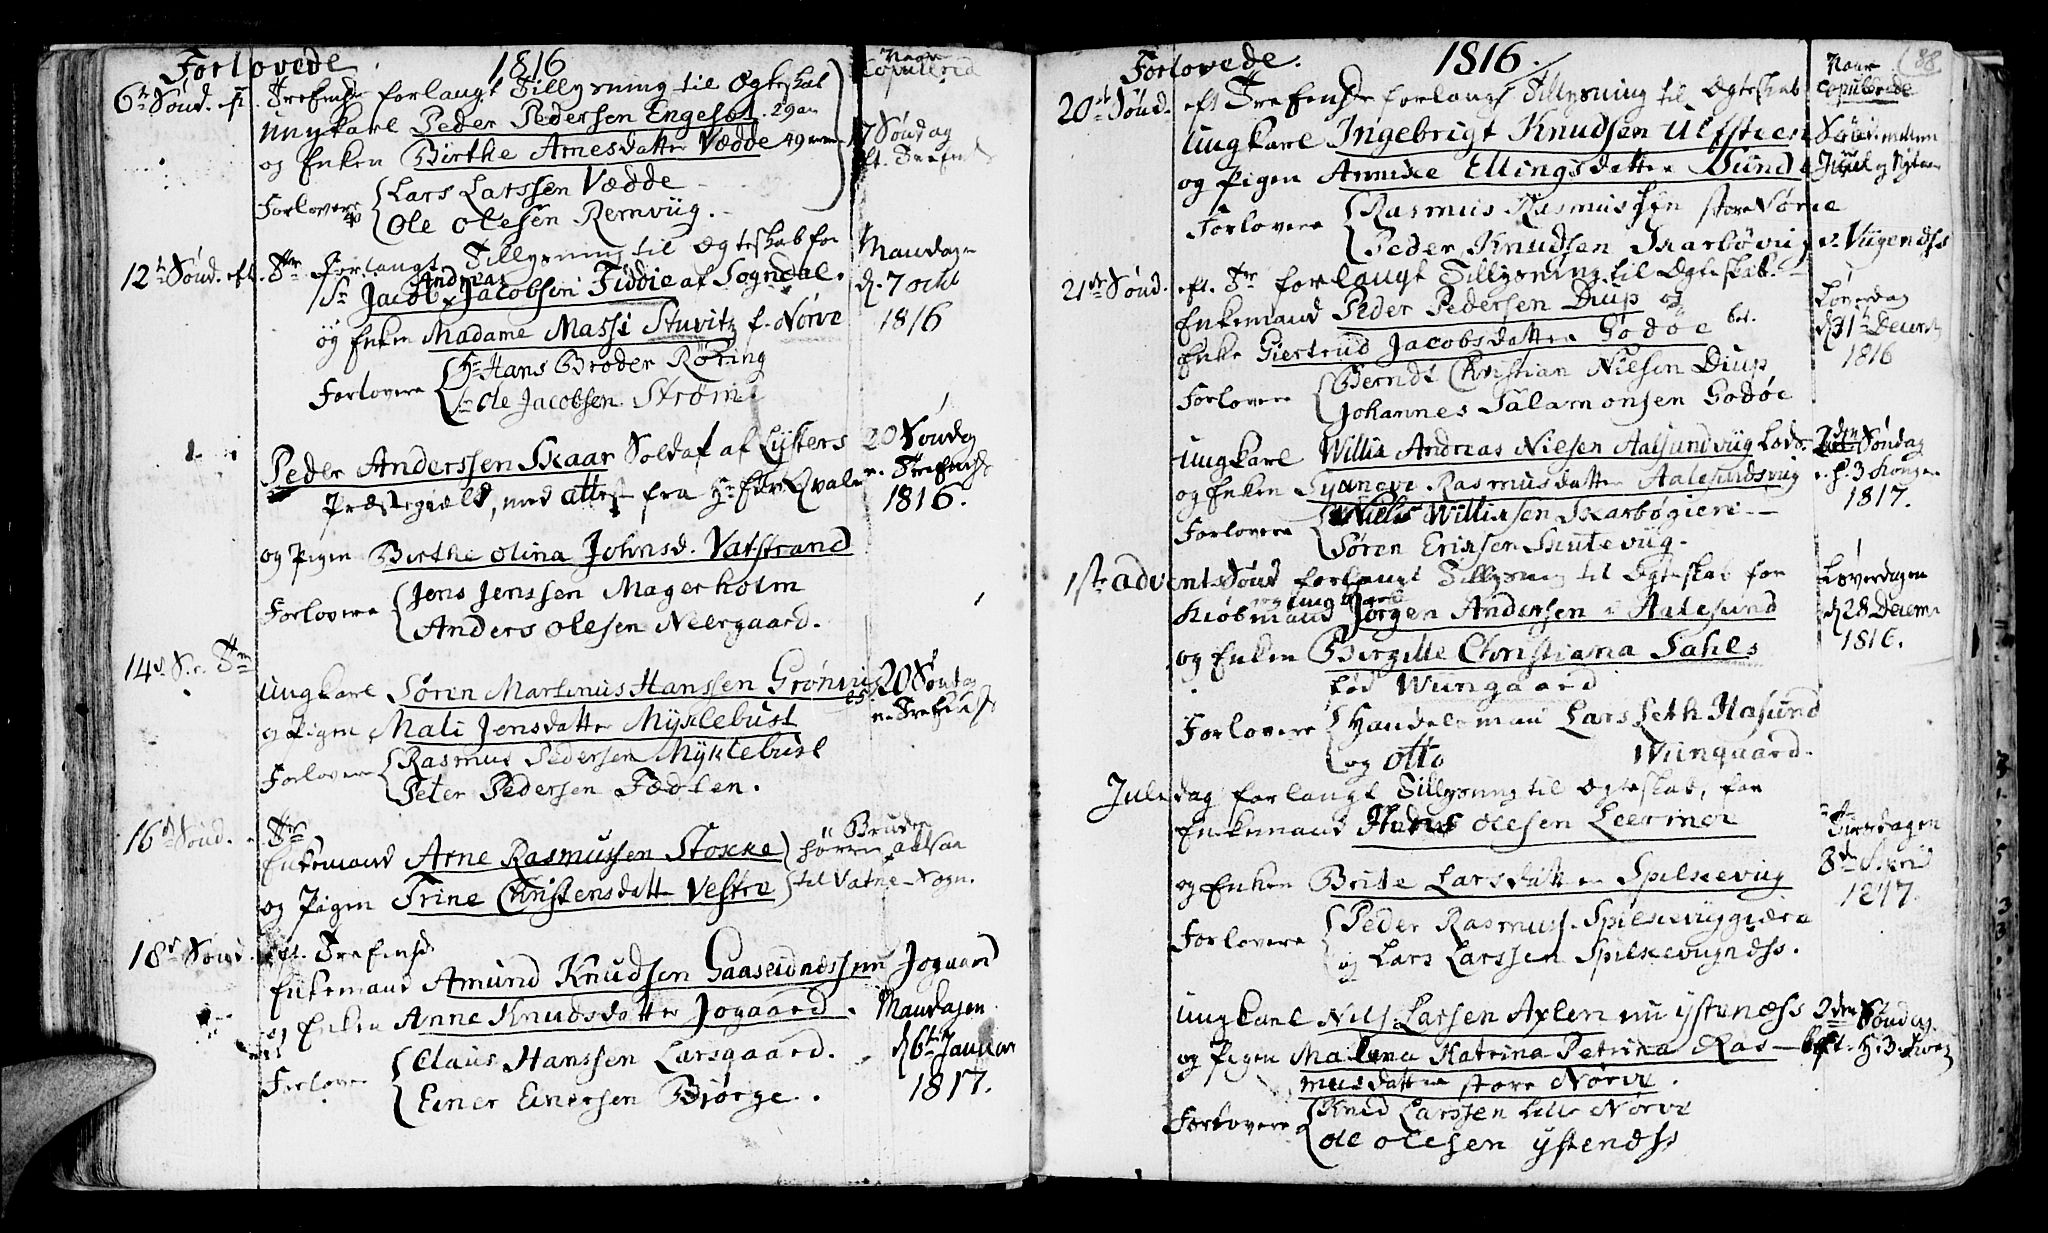 Forlovede 1816 Naar Copulered
6te Sønd. p. Trefensds forlangt Tillysning til Ægteskab
Ungkarl Peder Pedersen Engeset 29 aar
og Enken Birthe Arnesdatter Vædde 49
Forlovere Lars Larssen Vædde
Ole Olesen Remvüg.
7 Søndag eft. Trefends
12te Sønd. eft. Tr. forlangt Tillysning til Ægteskab for
Sr Jacob Andreas Jacobsen Fiddie af Sogndal.
og Enken Madame Massi Stuvitz f. Nørve
Forlovere Hr Hans Broder Røring
Sr Ole Jacobsen Strøm
Mandagen d. 7 octb 1816
Peder Anderssen Skaar Soldat af Lysters
Præstegield, med attest fra Hr Qvale
og Pigen Birthe Olina Johnsd. Vatstrand
Forlovere Jens Jenssen Magerholm
Anders Olesen Neergaard.
20 Søndag e. Trefends 1816.
14d S. e. Tr
Ungkarl Søren Martinus Hanssen Grønvig
og Pigen Mali Jensdatter Myklebust
Forlovere Rasmus Pedersen Myklebust
Peter Pedersen Tædten.
20 Søndag
16d Sønd. e. Tr
Enkemand Arne Rasmussen Stokke
og Pigen Trine Christensdatt Vestre
Bruden hører altsaa
til Vatne-Sogn.
18d Sønd. eft. Trefensds
Enkemand Amund Knudsen Gaaseidnessen Jogaard
og Enken Anne Knudsdatter Jogaard.
Forlovere Claus Hanssen Larsgaard.
Einer Einersen Bjørge.
Mandagen d 6te Januar 1817.
Forlovede. 1816. Naar Copulerede 38
20de Sønd. eft Trefensds forlangt Tillysning til Ægteskab
Ungkarl Ingebrigt Knudsen Ulfsteen
og Pigen Annike Ellingsdatter Sunde
Forlovere Rasmus Rasmussen store Nørve
Peder Knudsen Skarbøvig
Sønd. mellem Juul og Nytaar
21de Sønd. eft. Tr forlangt Tillysning til Ægteskab.
Enkemand Peder Pedersen Diup og
Enke Giertrud Jacobsdatter Godøe
Forlovere Berndt Christian Nielsen Diup
Johannes Salamonsen Godøe
Løverdag d 31te Decemb 1816
Ungkarl Willik Andreas Nielsen Aalsundvüg Lods
og Enken Sydneve Rasmusdatter Aalesundsvig
Forlovere Niels Williksen Skarbøgiere
Søren Eriksen Skutevüg.
2den Søndag e. H. 3 Konger 1817.
1ste Advents Sønd forlangt Tillysning til Ægteskab for
Kiøbmand og Ungkarl Jørgen Andersen i Aalesund
og Enken Birgitte Christiana Dahls
fød Wiingaard
Forlovere Handelsmand Lars Seth Hasund
og Otto Wiingaard.
Løverdagen d 28 Decemb 1816.
Juledag forlangt Tillysning til Ægteskab, for
Enkemand Hans Olesen Leermoe
og Enken Brite Larsdatter Spilkevug
Forlovere Peder Rasmuss. Spilkevuggiære
og Lars Larssen Spilkevugnds.
Tirsdagen 8de April 1817.
Ungkarl Nils Larsen Axlen nu Ystenæss
og Pigen Malena Katrina Petrina Ras-
musdatter store Nørve.
Forlovere Knud Larssen Lille Nørve
Ole Olesen Ystenæss
2den Søndag eft. H. 3 Kong